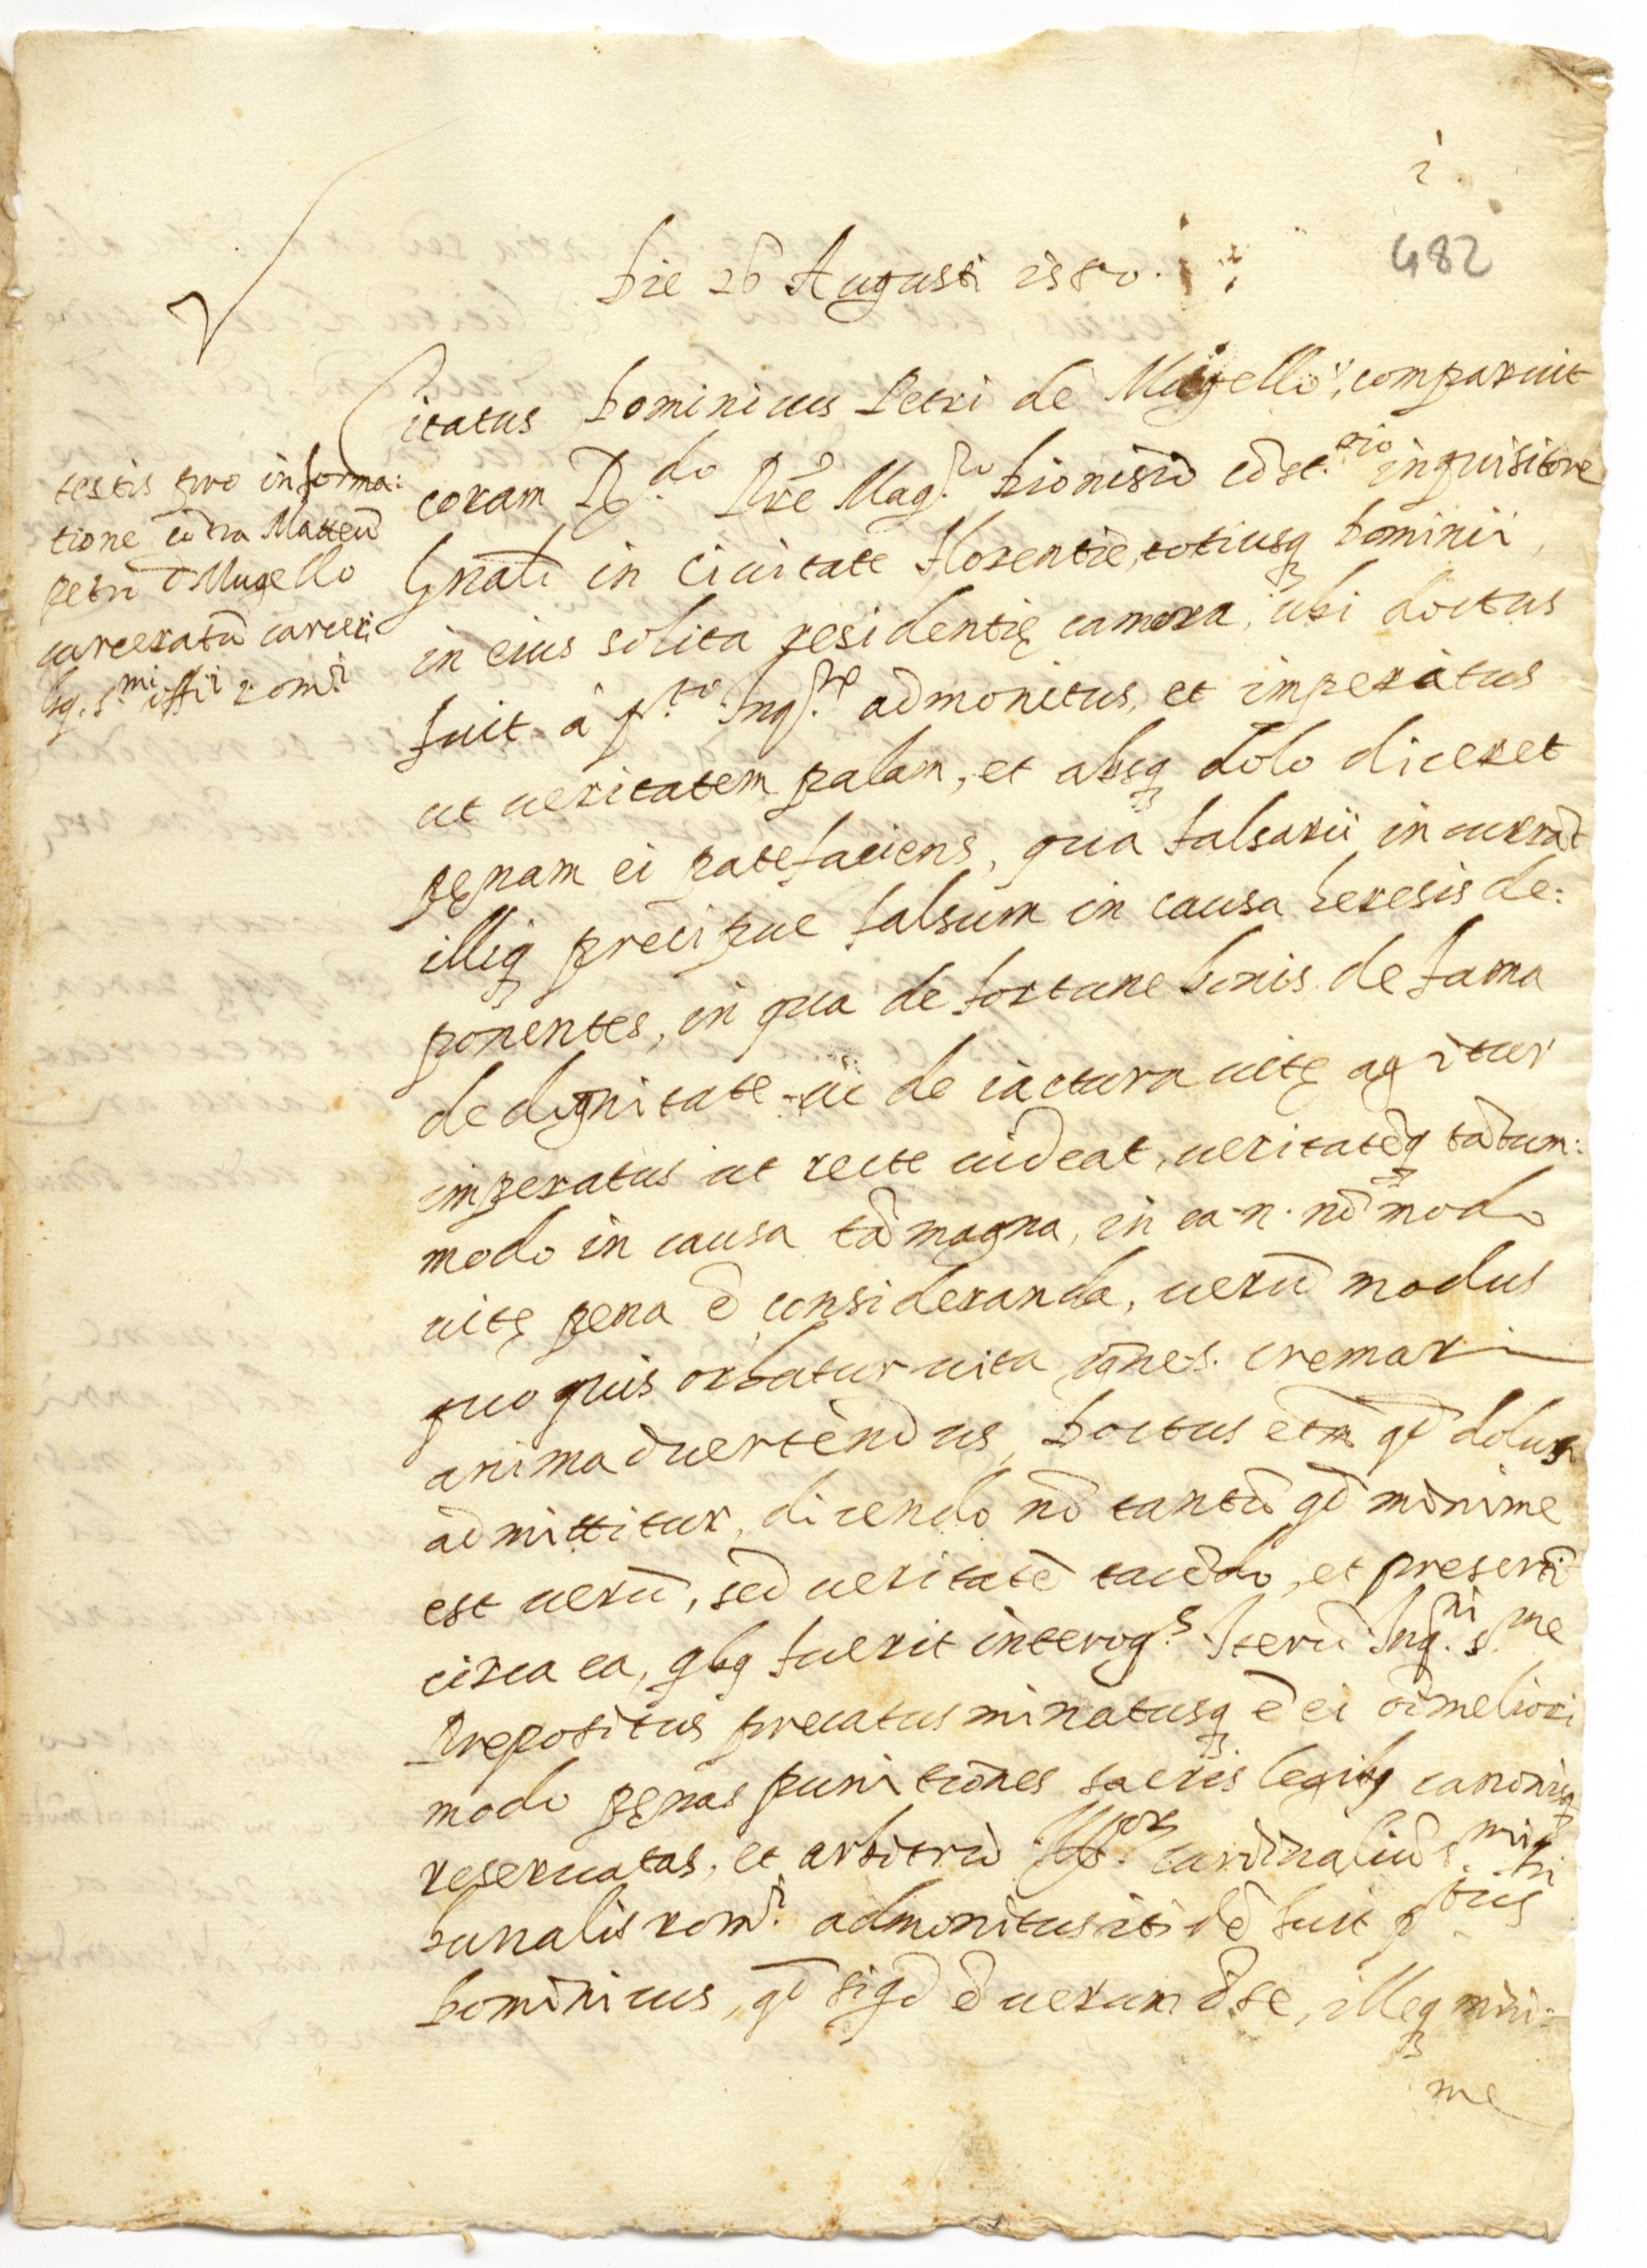 i
482
Die 26 Augusti 1580.
Citatus Dominicus Petri de Mugello, comparuit
coram R.do Prē Mag.ro Dionisio Cōst.rio inquisitore
Gn̄ali in Ciuitate Florentie, totiusq Dominii,
in eius solita residentię camera, ubi doctus
fuit à p.to Inq.re admonitus, et imperatus
ut ueritatem palam, et absq dolo diceret
pęnam ei patefaciens, qua falsarii incurrāt
illiq precipue falsum in causa heresis de:
ponentes, in qua de fortune bonis de fama
de dignitate ac de iactura uitę agitur
imperatus ut recte uideat, ueritatēq tātum:
modo in causa tā magna, in ea .n. nō modo
uitę pena ē consideranda, uerū modus
quo quis orbatur uita ignes. cremari
animaduertendus, Doctus etm̄ qd dolus
admittitur, dicendo nō tantū qd minime
est uerū, sed ueritatē tacēdo, et presertī
circa ea, qbq fuerit interog.s Iterū Inq.ni s.me
Prepositus precatus minatusq ē ei oī meliori
modo pęnas punitiones sacris legibq canonisq
reseruatas, et arbitriū Ill.orum cardinaliū s.mi tri
bunalis rom.i admonitus itidē fuit p.tus
Dominicus, qd siqd ē uerum dē se, illeq mini:
me
testis pro informa:
tione cōtra Matteū
petri d Mugello
carceratū carceri
bq. s.mi offi.i rom.i